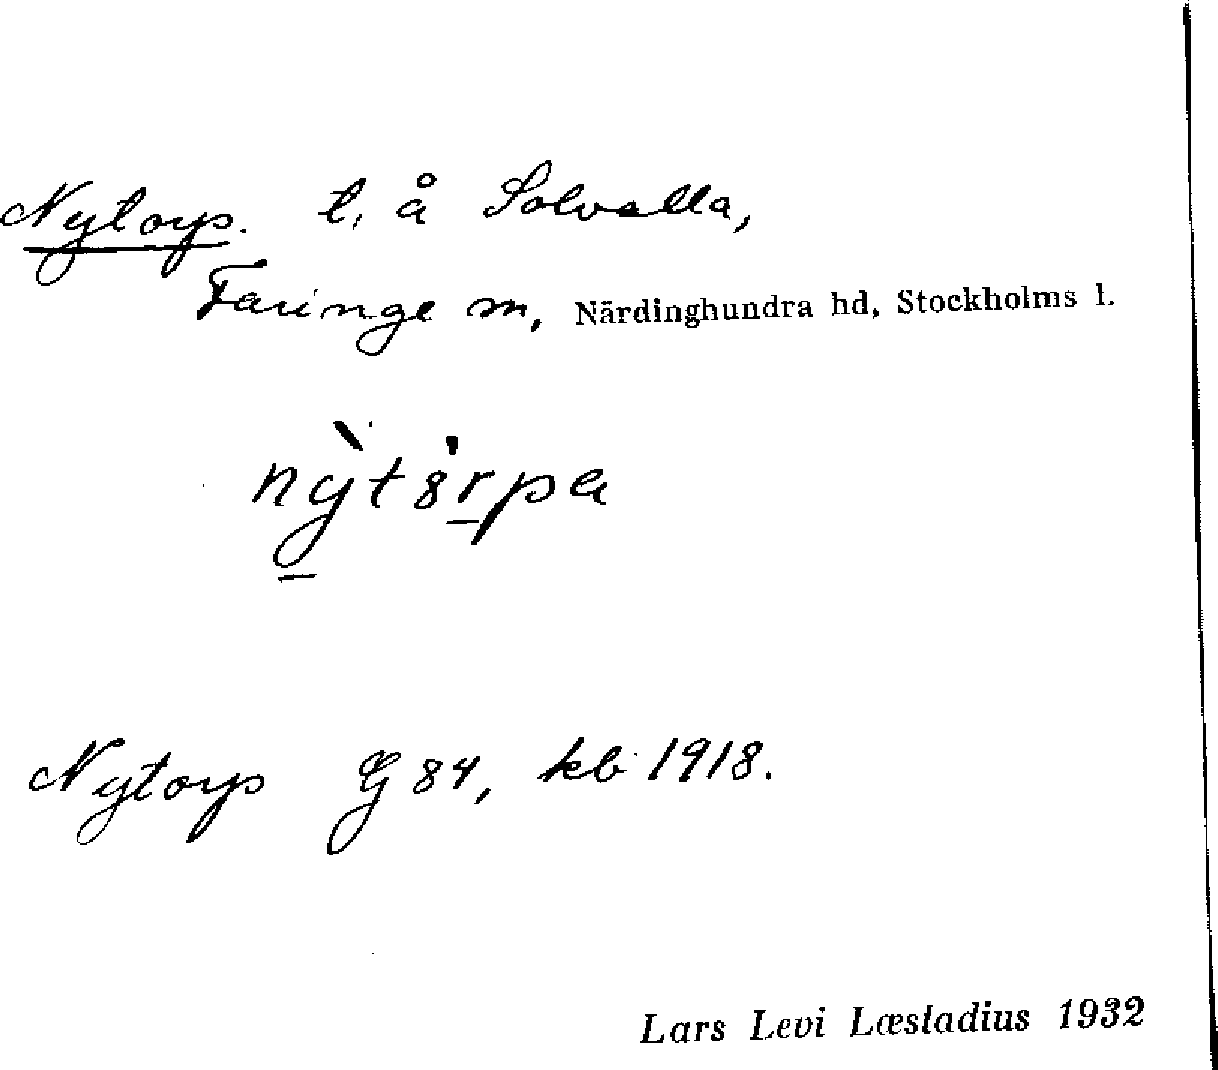 Nytorp. t. å Solvalla,
Faringe sn, Närdinghundra hd, Stockholms l.
Nytorp G 84, kb 1918.
Lars Levi Læstadius 1932